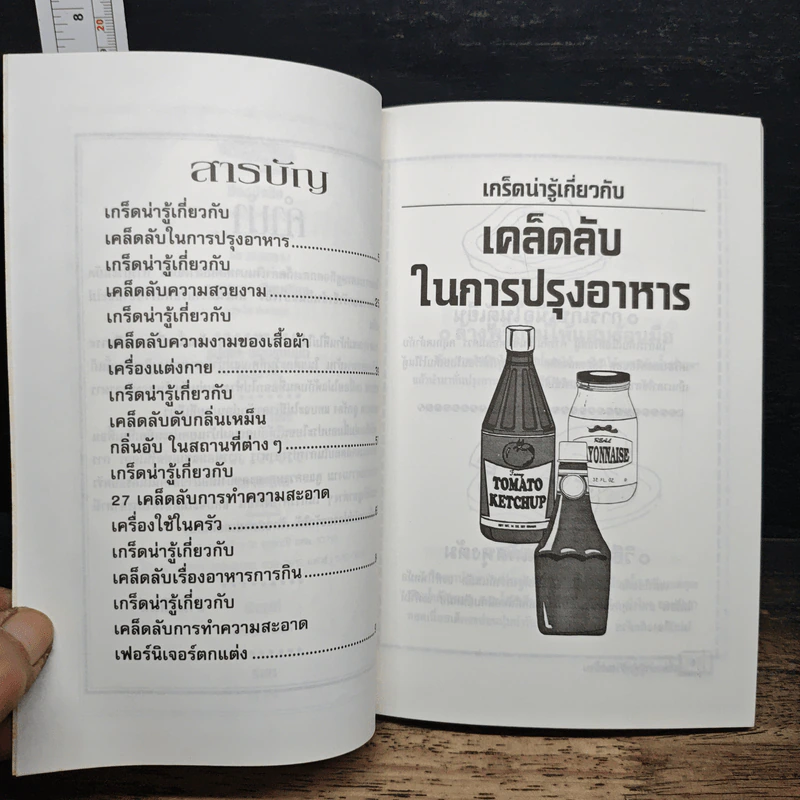 8
20
สารบัญ
เกร็ดน่ารู้เกี่ยวกับ
เคล็ดลับในการปรุงอาหาร
เกร็ดน่ารู้เกี่ยวกับ
เคล็ดลับความสวยงาม
เกร็ดน่ารู้เกี่ยวกับ
เคล็ดลับความงามของเสื้อผ้า
เครื่องแต่งกาย
เกร็ดน่ารู้เกี่ยวกับ
เคล็ดลับดับกลิ่นเหม็น
กลิ่นอับ ในสถานที่ต่าง ๆ
เกร็ดน่ารู้เกี่ยวกับ
27 เคล็ดลับการทำความสะอาด
เครื่องใช้ในครัว
เกร็ดน่ารู้เกี่ยวกับ
เคล็ดลับเรื่องอาหารการกิน
เกร็ดน่ารู้เกี่ยวกับ
เคล็ดลับการทำความสะอาด
เฟอร์นิเจอร์ตกแต่ง
เกร็ดน่ารู้เกี่ยวกับ
เคล็ดลับ
ในการปรุงอาหาร
REAL
YONNAISE
TOMATO
KETCHUP